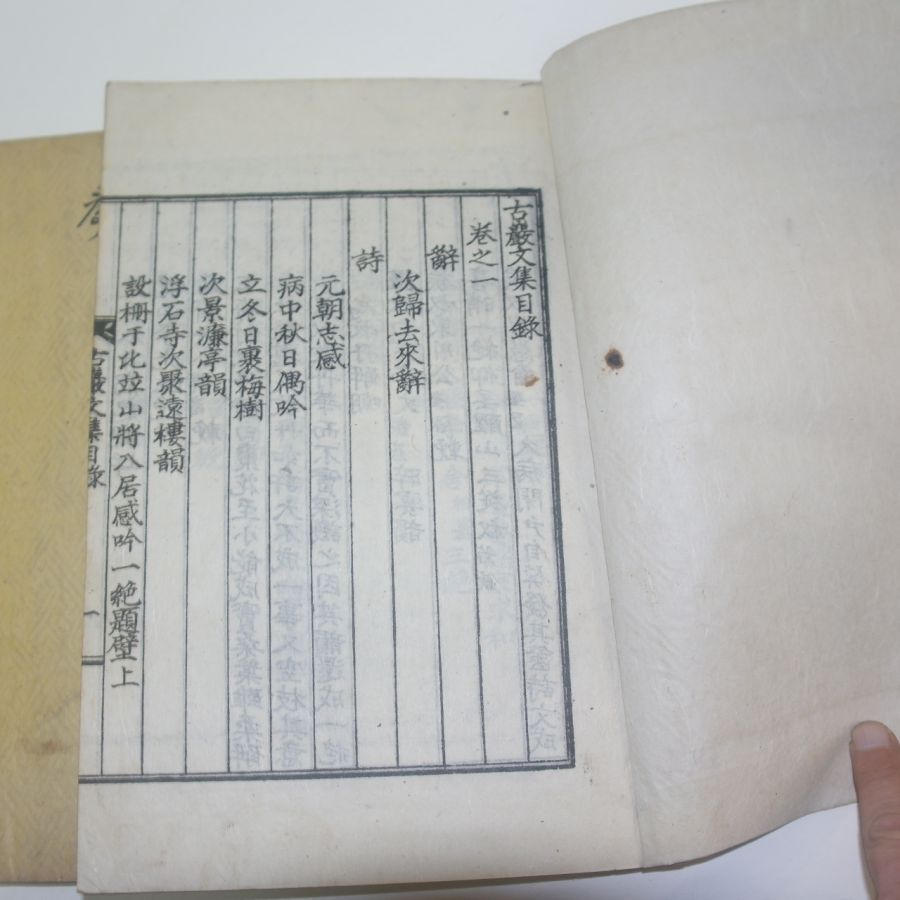 古巖文集目錄
卷之一
辭
次歸去來辭
詩
元朝志感
病中秋日偶吟
立冬日裹梅樹
次景濂亭韻
浮石寺次聚遠樓韻
設柵于比竝山將入居感吟一絶題壁上
古巖文集目錄
一